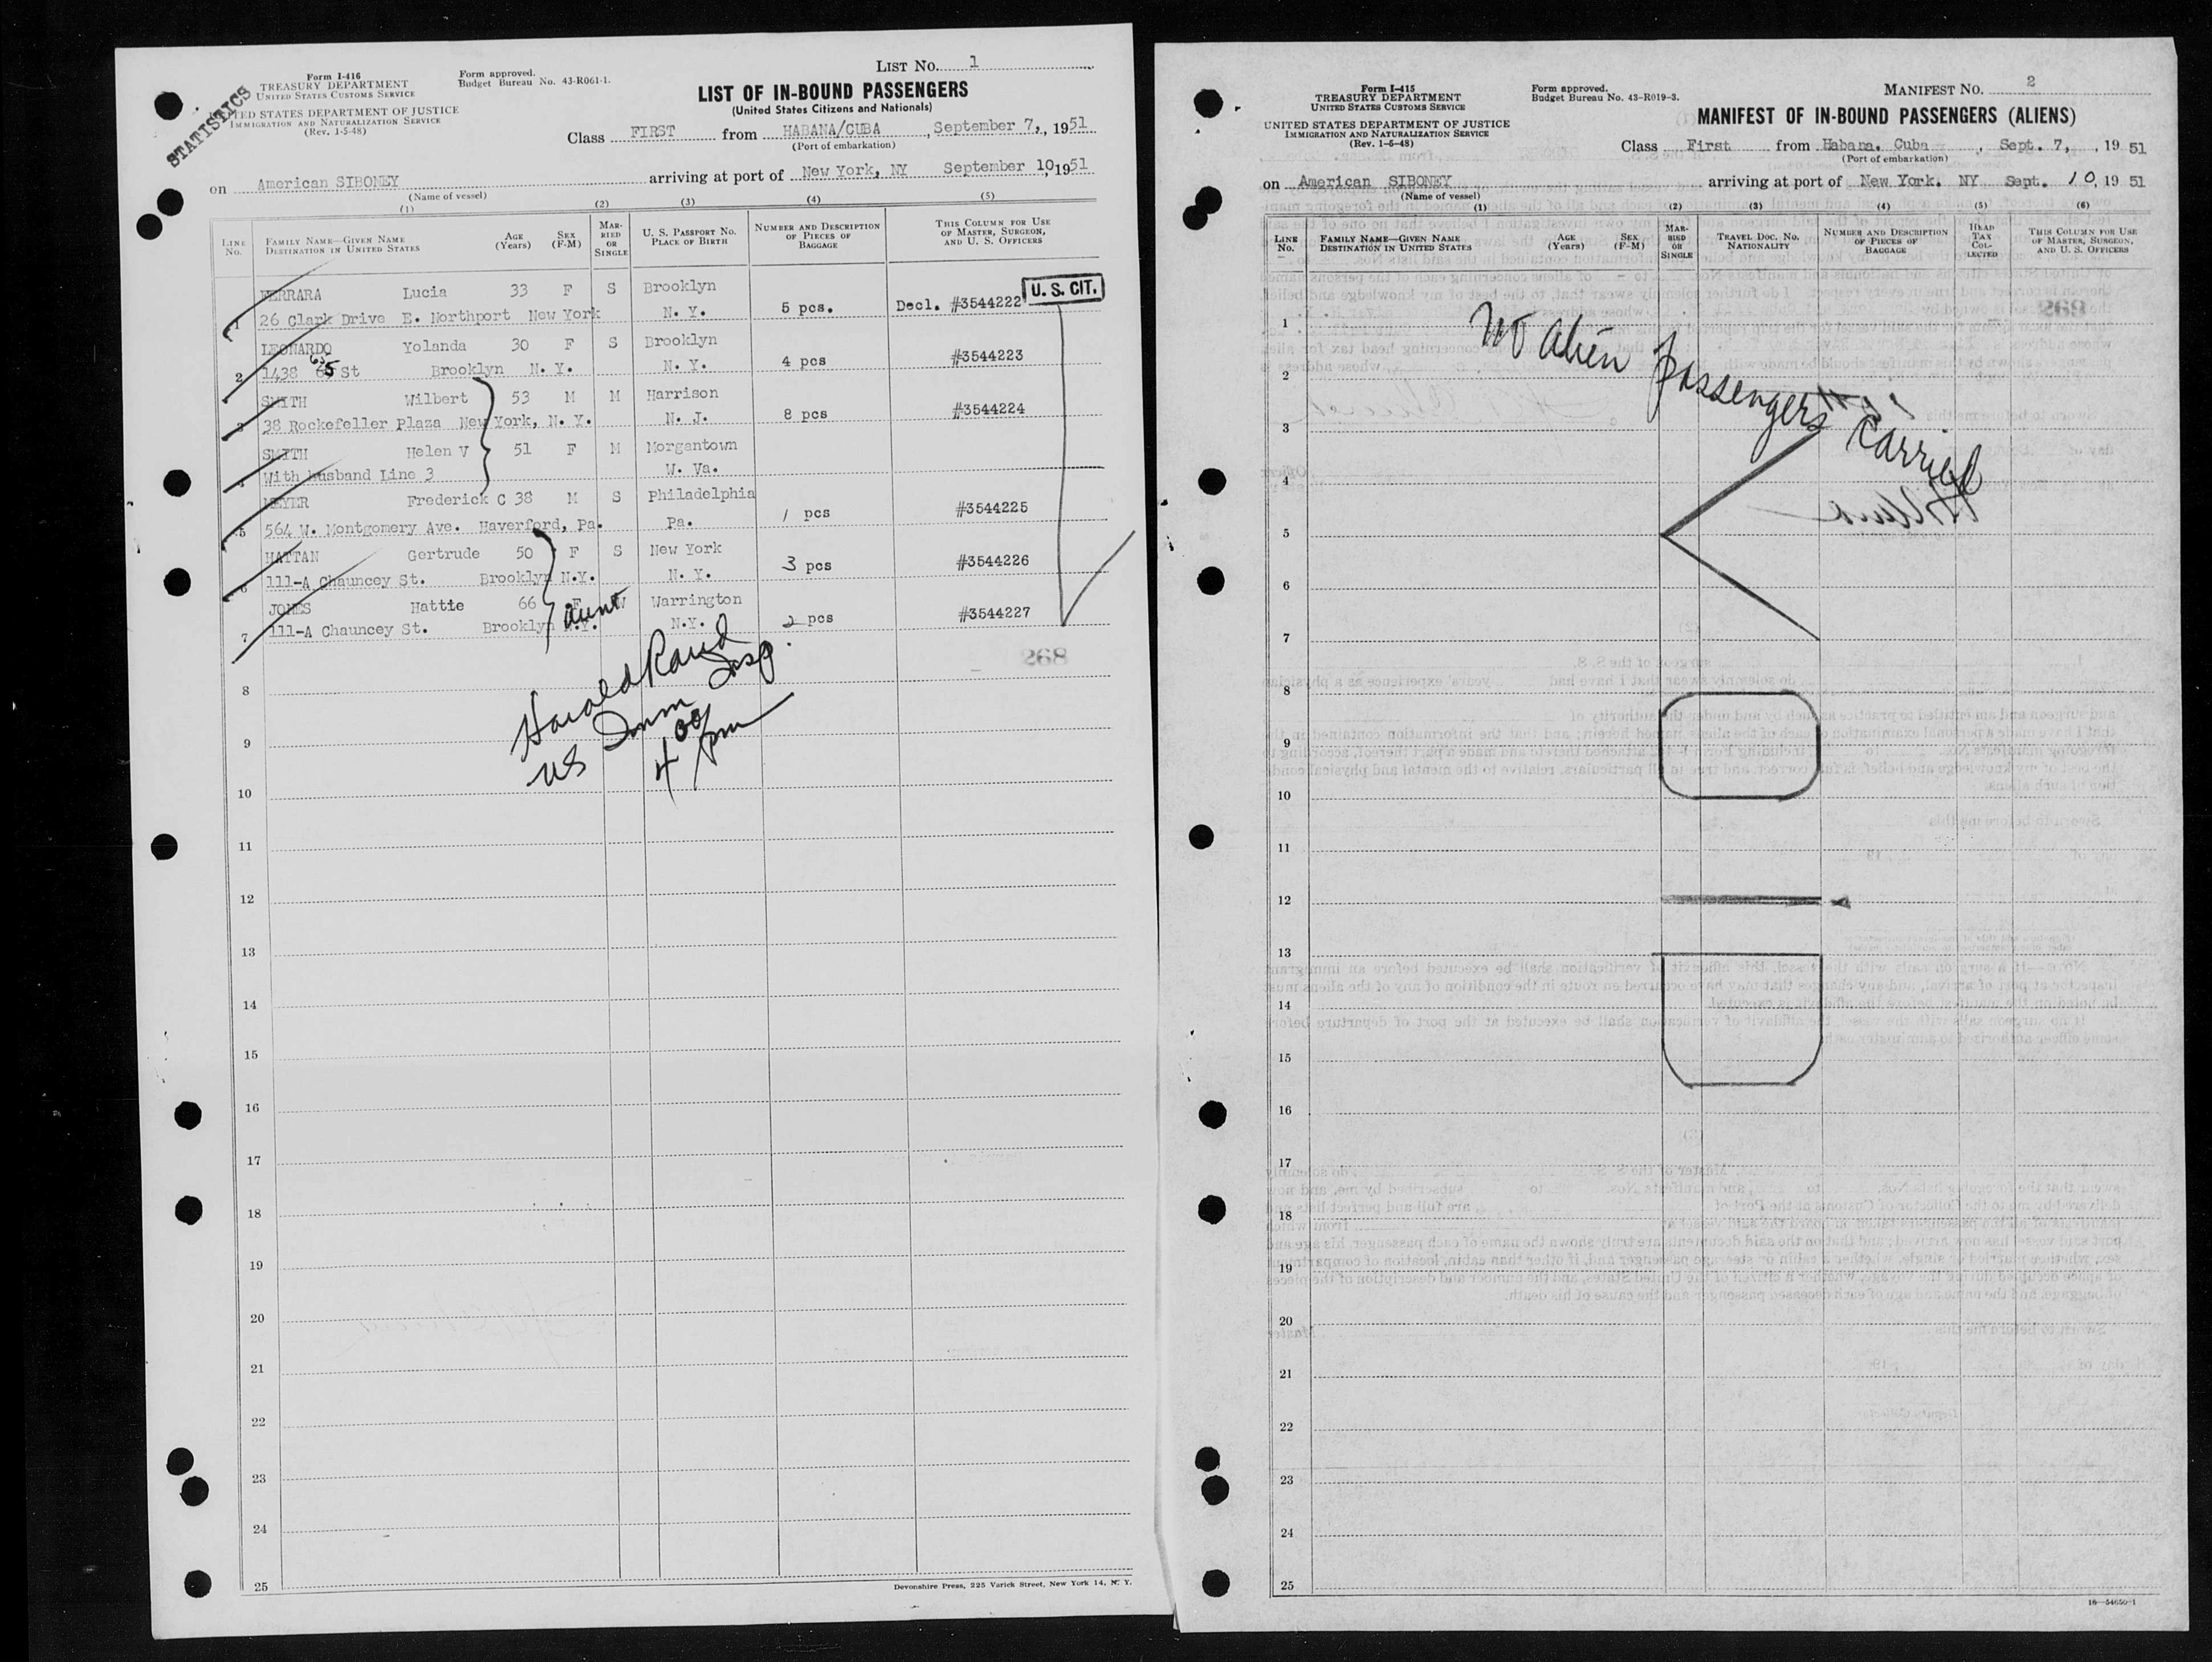 STATISTICS
Form I-416
TREASURY DEPARTMENT
UNITED STATES CUSTOMS SERVICE
UNITED STATES DEPARTMENT OF JUSTICE
IMMIGRATION AND NATURALIZATION SERVICE
(Rev. 1-5-48)
Form approved.
Budget Bureau No. 43-R061-1.
LIST NO. 1
LIST OF IN-BOUND PASSENGERS
(United States Citizens and Nationals)
Class FIRST from HABANA/CUBA, September 7,, 1951
(Port of embarkation)
on American SIBONEY arriving at port of New York, NY September 10, 1951
(Name of vessel)
(1) (2) (3) (4) (5)
LINE No. FAMILY NAME—GIVEN NAME DESTINATION IN UNITED STATES AGE (Years) SEX (F-M) MARRIED OR SINGLE U. S. PASSPORT NO. PLACE OF BIRTH NUMBER AND DESCRIPTION OF PIECES OF BAGGAGE THIS COLUMN FOR USE OF MASTER, SURGEON, AND U. S. OFFICERS
U. S. CIT.
FERRARA Lucia 33 F S Brooklyn
1 26 Clark Drive E. Northport New York N. Y. 5 pcs. Decl. #3544222
LEONARDO Yolanda 30 F S Brooklyn
2 1438 65 St Brooklyn N. Y. N. Y. 4 pcs #3544223
SMITH Wilbert 53 M M Harrison
3 38 Rockefeller Plaza New York, N. Y. N. J. 8 pcs #3544224
SMITH Helen V 51 F M Morgantown
4 With husband Line 3 W. Va.
MEYER Frederick C 38 M S Philadelphia
5 564 W. Montgomery Ave. Haverford, Pa. Pa. 1 pcs #3544225
HATTAN Gertrude 50 F S New York
6 111-A Chauncey St. Brooklyn N.Y. N. Y. 3 pcs #3544226
JONES Hattie 66 F W Warrington
7 111-A Chauncey St. Brooklyn N.Y. aunt N.Y. 2 pcs #3544227
868
Harold Rand
US Imm Insp.
4 00 pm
8
9
10
11
12
13
14
15
16
17
18
19
20
21
22
23
24
25
Devonshire Press, 225 Varick Street, New York 14, N. Y.
Form I-415
TREASURY DEPARTMENT
UNITED STATES CUSTOMS SERVICE
UNITED STATES DEPARTMENT OF JUSTICE
IMMIGRATION AND NATURALIZATION SERVICE
(Rev. 1-5-48)
Form approved.
Budget Bureau No. 43-R019-3.
MANIFEST NO. 2
MANIFEST OF IN-BOUND PASSENGERS (ALIENS)
Class First from Habana. Cuba, Sept. 7,, 1951
(Port of embarkation)
on American SIBONEY arriving at port of New York. NY Sept. 10, 1951
(Name of vessel)
(1) (2) (3) (4) (5) (6)
LINE No. FAMILY NAME—GIVEN NAME DESTINATION IN UNITED STATES AGE (Years) SEX (F-M) MARRIED OR SINGLE TRAVEL DOC. NO. NATIONALITY NUMBER AND DESCRIPTION OF PIECES OF BAGGAGE HEAD TAX COLLECTED THIS COLUMN FOR USE OF MASTER, SURGEON, AND U. S. OFFICERS
868
No Alien passengers carried
1
2
3
4
5
6
7
8
9
10
11
12
13
14
15
16
17
18
19
20
21
22
23
24
25
16—54650-1